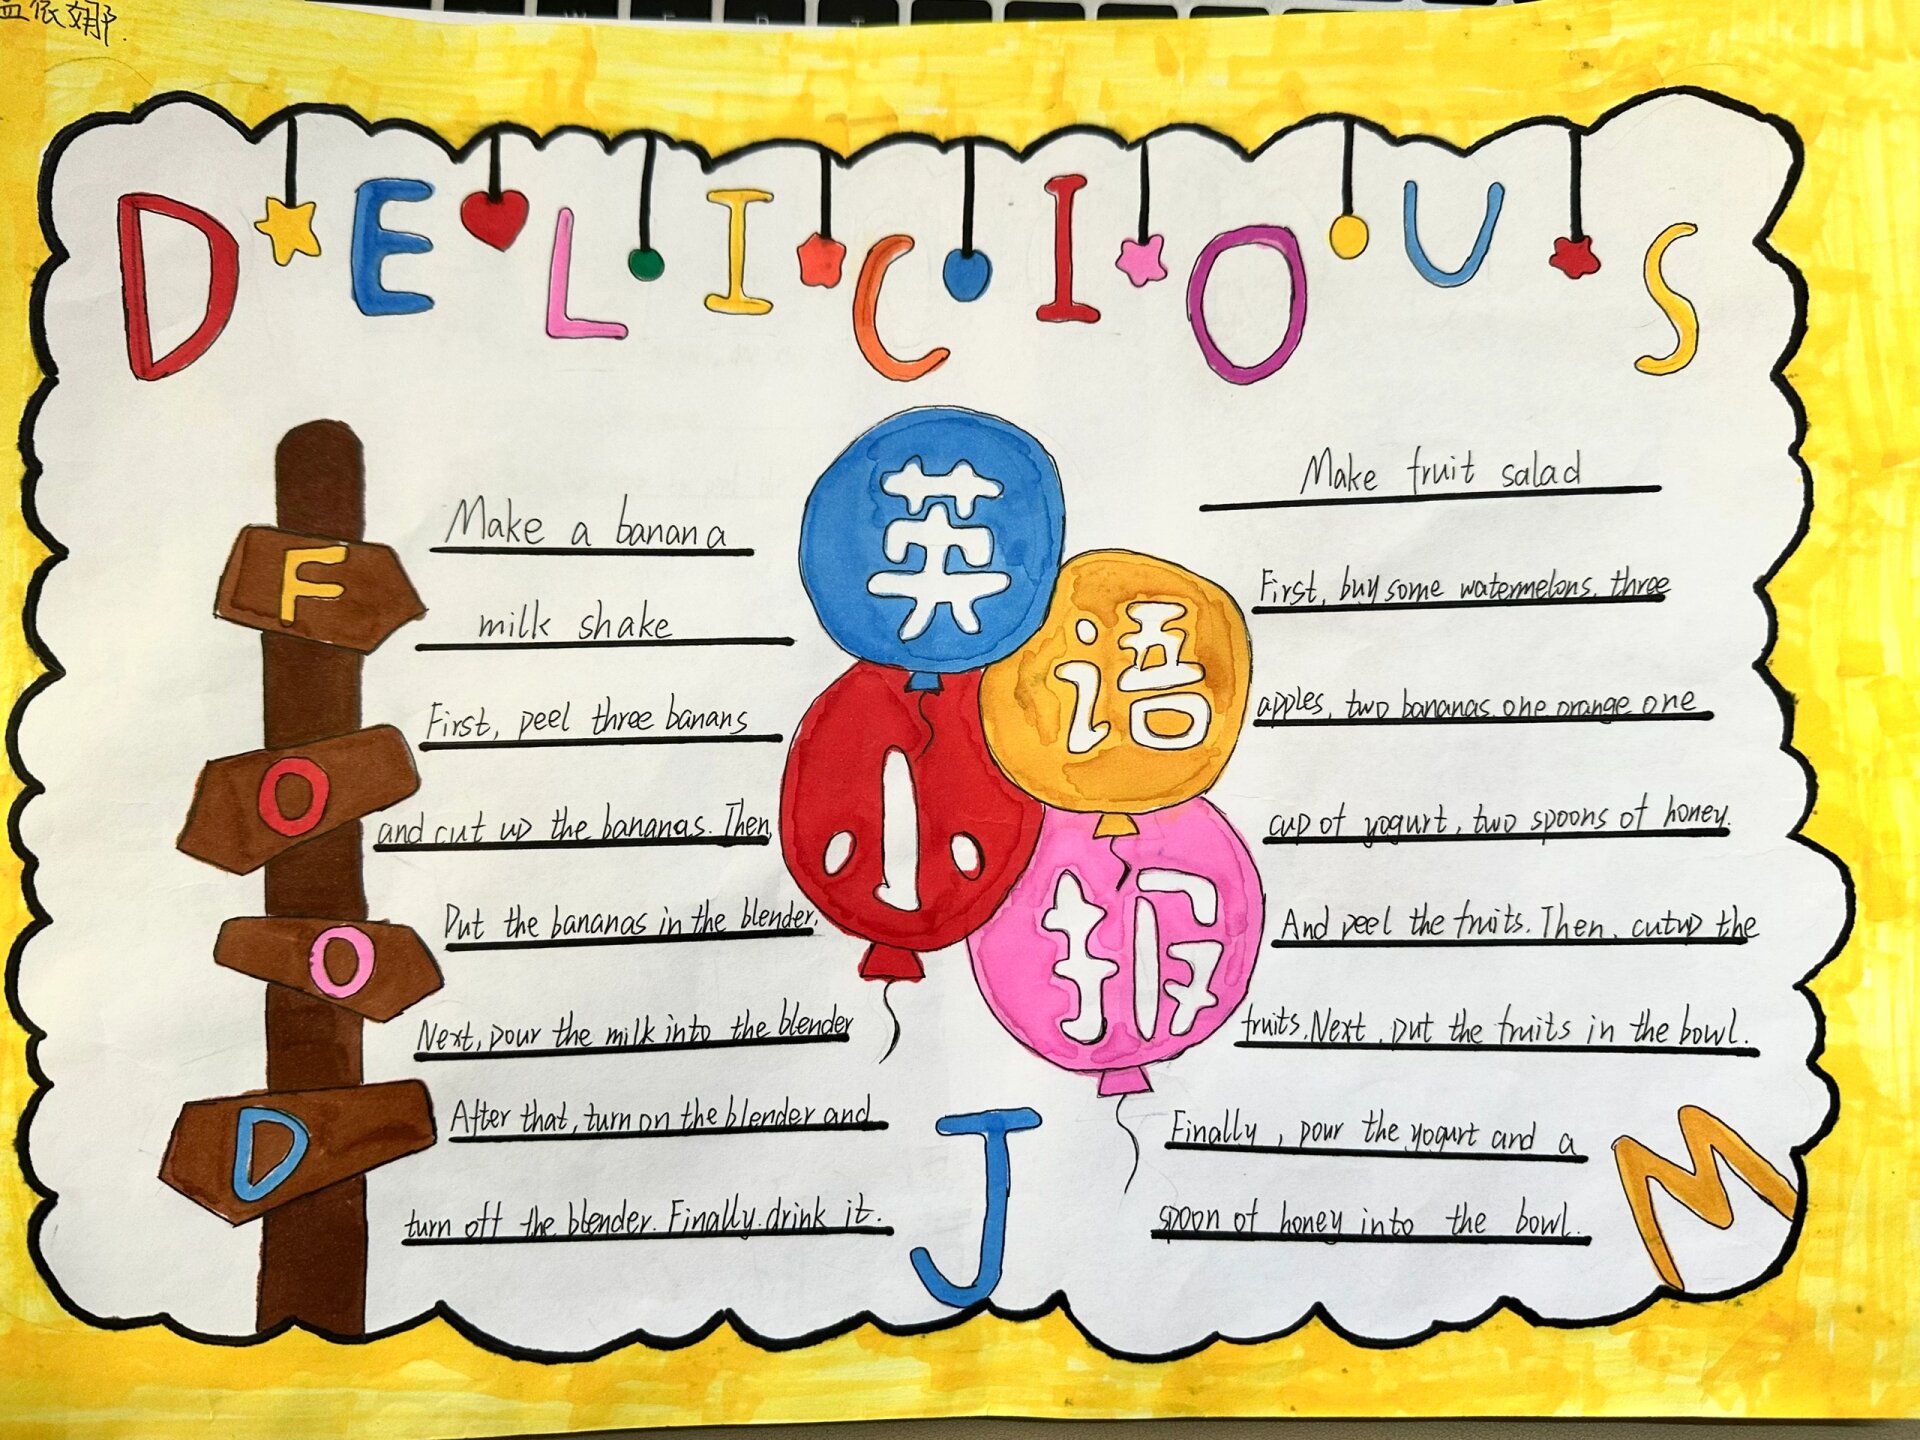 依娜.
DELICIOUS
FOOD
Make a banana
milk shake
First, peel three banans
and cut up the bananas. Then,
Put the bananas in the blender.
Next, pour the milk into the blender
After that, turn on the blender and
turn off the blender. Finally. drink it.
英
语
小
报
Make fruit salad
First, buy some watermelons. three
apples, two bananas. one orange one
cup of yogurt, two spoons of honey.
And peel the fruits. Then. cut up the
fruits. Next. put the fruits in the bowl.
Finally, pour the yogurt and a
spoon of honey into the bowl.
J
M